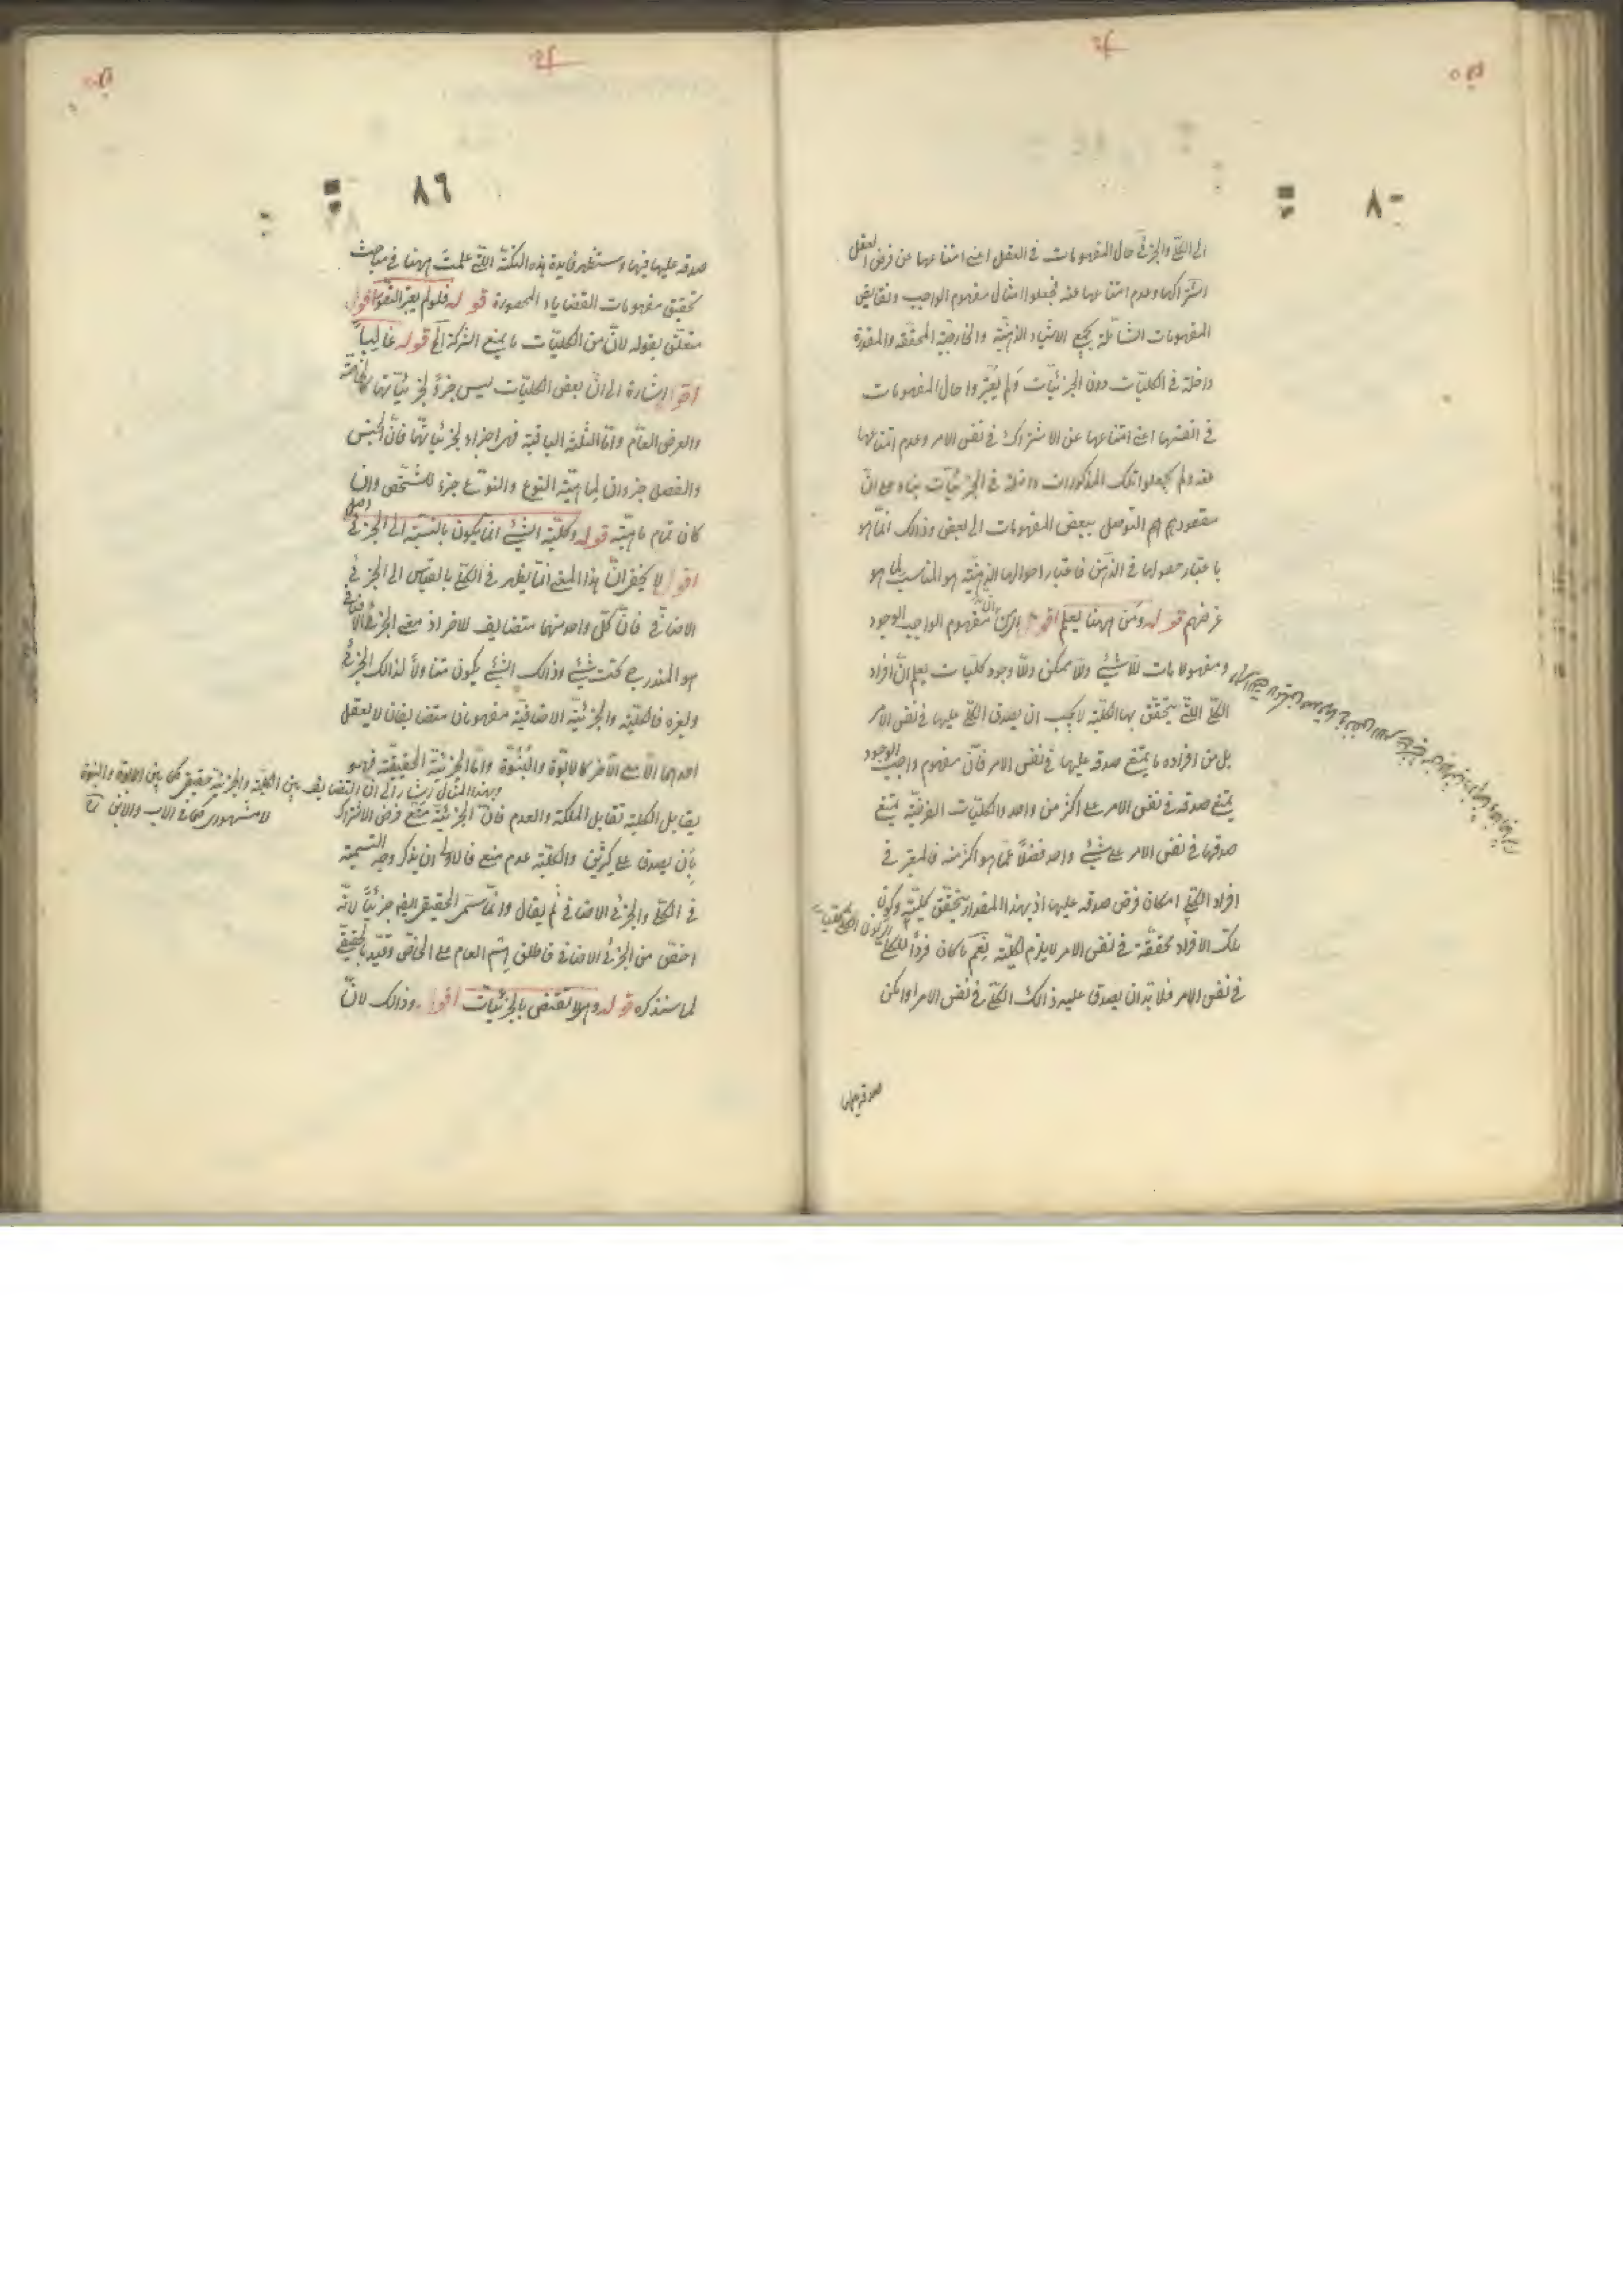 ٨٠
الى الكلي والجزئي حال المفهومات في العقل اعني امتناعها عن فرض العقل
اشتراكها وعدم امتناعها عنه فجعلوا امثال مفهوم الواجب ونقايض
المفهومات الشاملة بجميع الاشياء الذهنية والخارجية المحققة والمقدرة
داخلة في الكليات دون الجزئيات ولم يعتبروا حال المفهومات
في انفسها اعني امتناعها عن الاشتراك في نفس الامر وعدم امتناعها
عنه ولم يجعلوا تلك المذكورات داخلة في الجزئيات بناء على ان
مقصودهم التوصل ببعض المفهومات الى بعض وذلك انما هو
باعتبار حصولها في الذهن فاعتبار احوالها الذهنية هو المناسب لما هو
غرضهم قوله ومن ههنا يعلم اقول اي من ان مفهوم الواجب الوجود
ومفهومات اللاشيء واللاممكن واللاوجود كليات يعلم ان افراد
الكلي التي يتحقق بها الكلية لا يجب ان يصدق الكلي عليها في نفس الامر
بل من افراده ما يمتنع صدقه عليها في نفس الامر فان مفهوم واجب الوجود
يمتنع صدقه في نفس الامر على اكثر من واحد والكليات الفرضية يمتنع
صدقها في نفس الامر على شيء واحد فضلاً عما هو اكثر منه فالمعتبر في
افراد الكلي امكان فرض صدقه عليها اذ بهذا المقدار يتحقق كليته وكون
تلك الافراد محققة في نفس الامر لا يلزم لكلية نعم ما كان فرداً للكلي
في نفس الامر فلا بد ان يصدق عليه ذلك الكلي في نفس الامر او امكن
صدقه عليها
٨٦
صدقه عليها فيها وستظهر فايدة هذه النكتة التي علمت ههنا في مباحث
تحقيق مفهومات القضايا المحصورة قوله فلو لم يعتبر التصور اقول
متعلق بقوله لان من الكليات ما يمنع الشركة الى قوله غالباً
اقول اشارة الى ان بعض الكليات ليس جزءً لجزئياتها كالخاصة
والعرض العام واما الثلثة الباقية فهي اجزاء لجزئياتها فان الجنس
والفصل جزءان لماهية النوع والنوع جزء للشخص وان
كان تمام ماهيته قوله وكلية الشيء انما يكون بالنسبة الى الجزئي
اقول لا يخفى ان هذا المعنى انما يظهر في الكلي بالقياس الى الجزئي
الاضافي فان كل واحد منهما متضايف للاخر اذ معنى الجزئي الاضافي
هو المندرج تحت شيء وذلك الشيء يكون متناولاً لذلك الجزئي
ولغيره فالكلية والجزئية الاضافية مفهومان متضايفان لا يعقل
احدهما الا مع الاخر كالابوة والبنوة واما الجزئية الحقيقية فهو
وبهذا المثال اشار الى ان التضايف بين الكلية والجزئية حقيقي كما بين الابوة والبنوة
لا مشهوري كما في الاب والابن
يقابل الكلية تقابل الملكة والعدم فان الجزئية منع فرض الاشتراك
بان يصدق على كثيرين والكلية عدم منع فالاولى ان يذكر وجه التسمية
في الكلي والجزئي الاضافي ثم يقال وانما سمي الحقيقي ايضا جزئياً لانه
اخص من الجزئي الاضافي فاطلق اسم العام على الخاص وقيد بالحقيقي
لما سنذكره قوله وهلا تقتنص بالجزئيات اقول وذلك لان